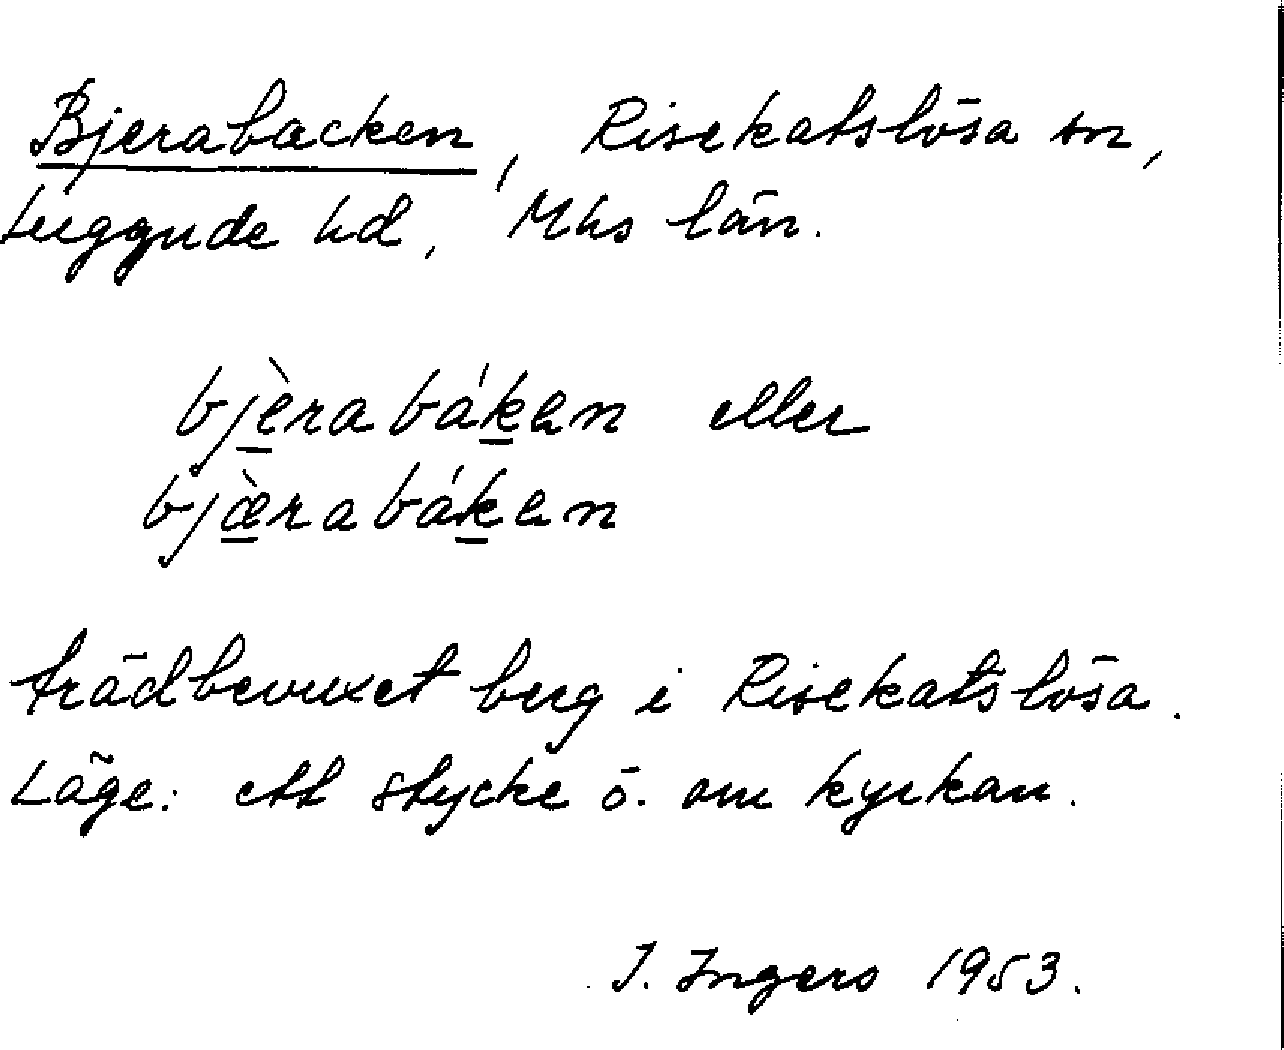 Bjerabacken, Risekatslösa sn,
Luggude hd, Mhs län.
bjèrabáken eller
bjæ̀rabáken
trädbevuxet berg i Risekatslösa.
Läge: ett stycke ö. om kyrkan.
I. Ingers 1953.